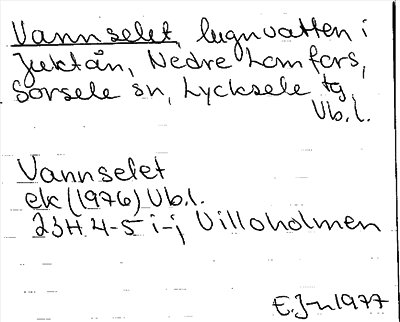 Vannselet, lugnvatten i
Juktån, Nedre Lomfors,
Sorsele sn, Lycksele tg
Vb.l.
Vannselet
ek (1976) Vb.l.
23H 4-5 i-j Villoholmen
E.J-n 1977